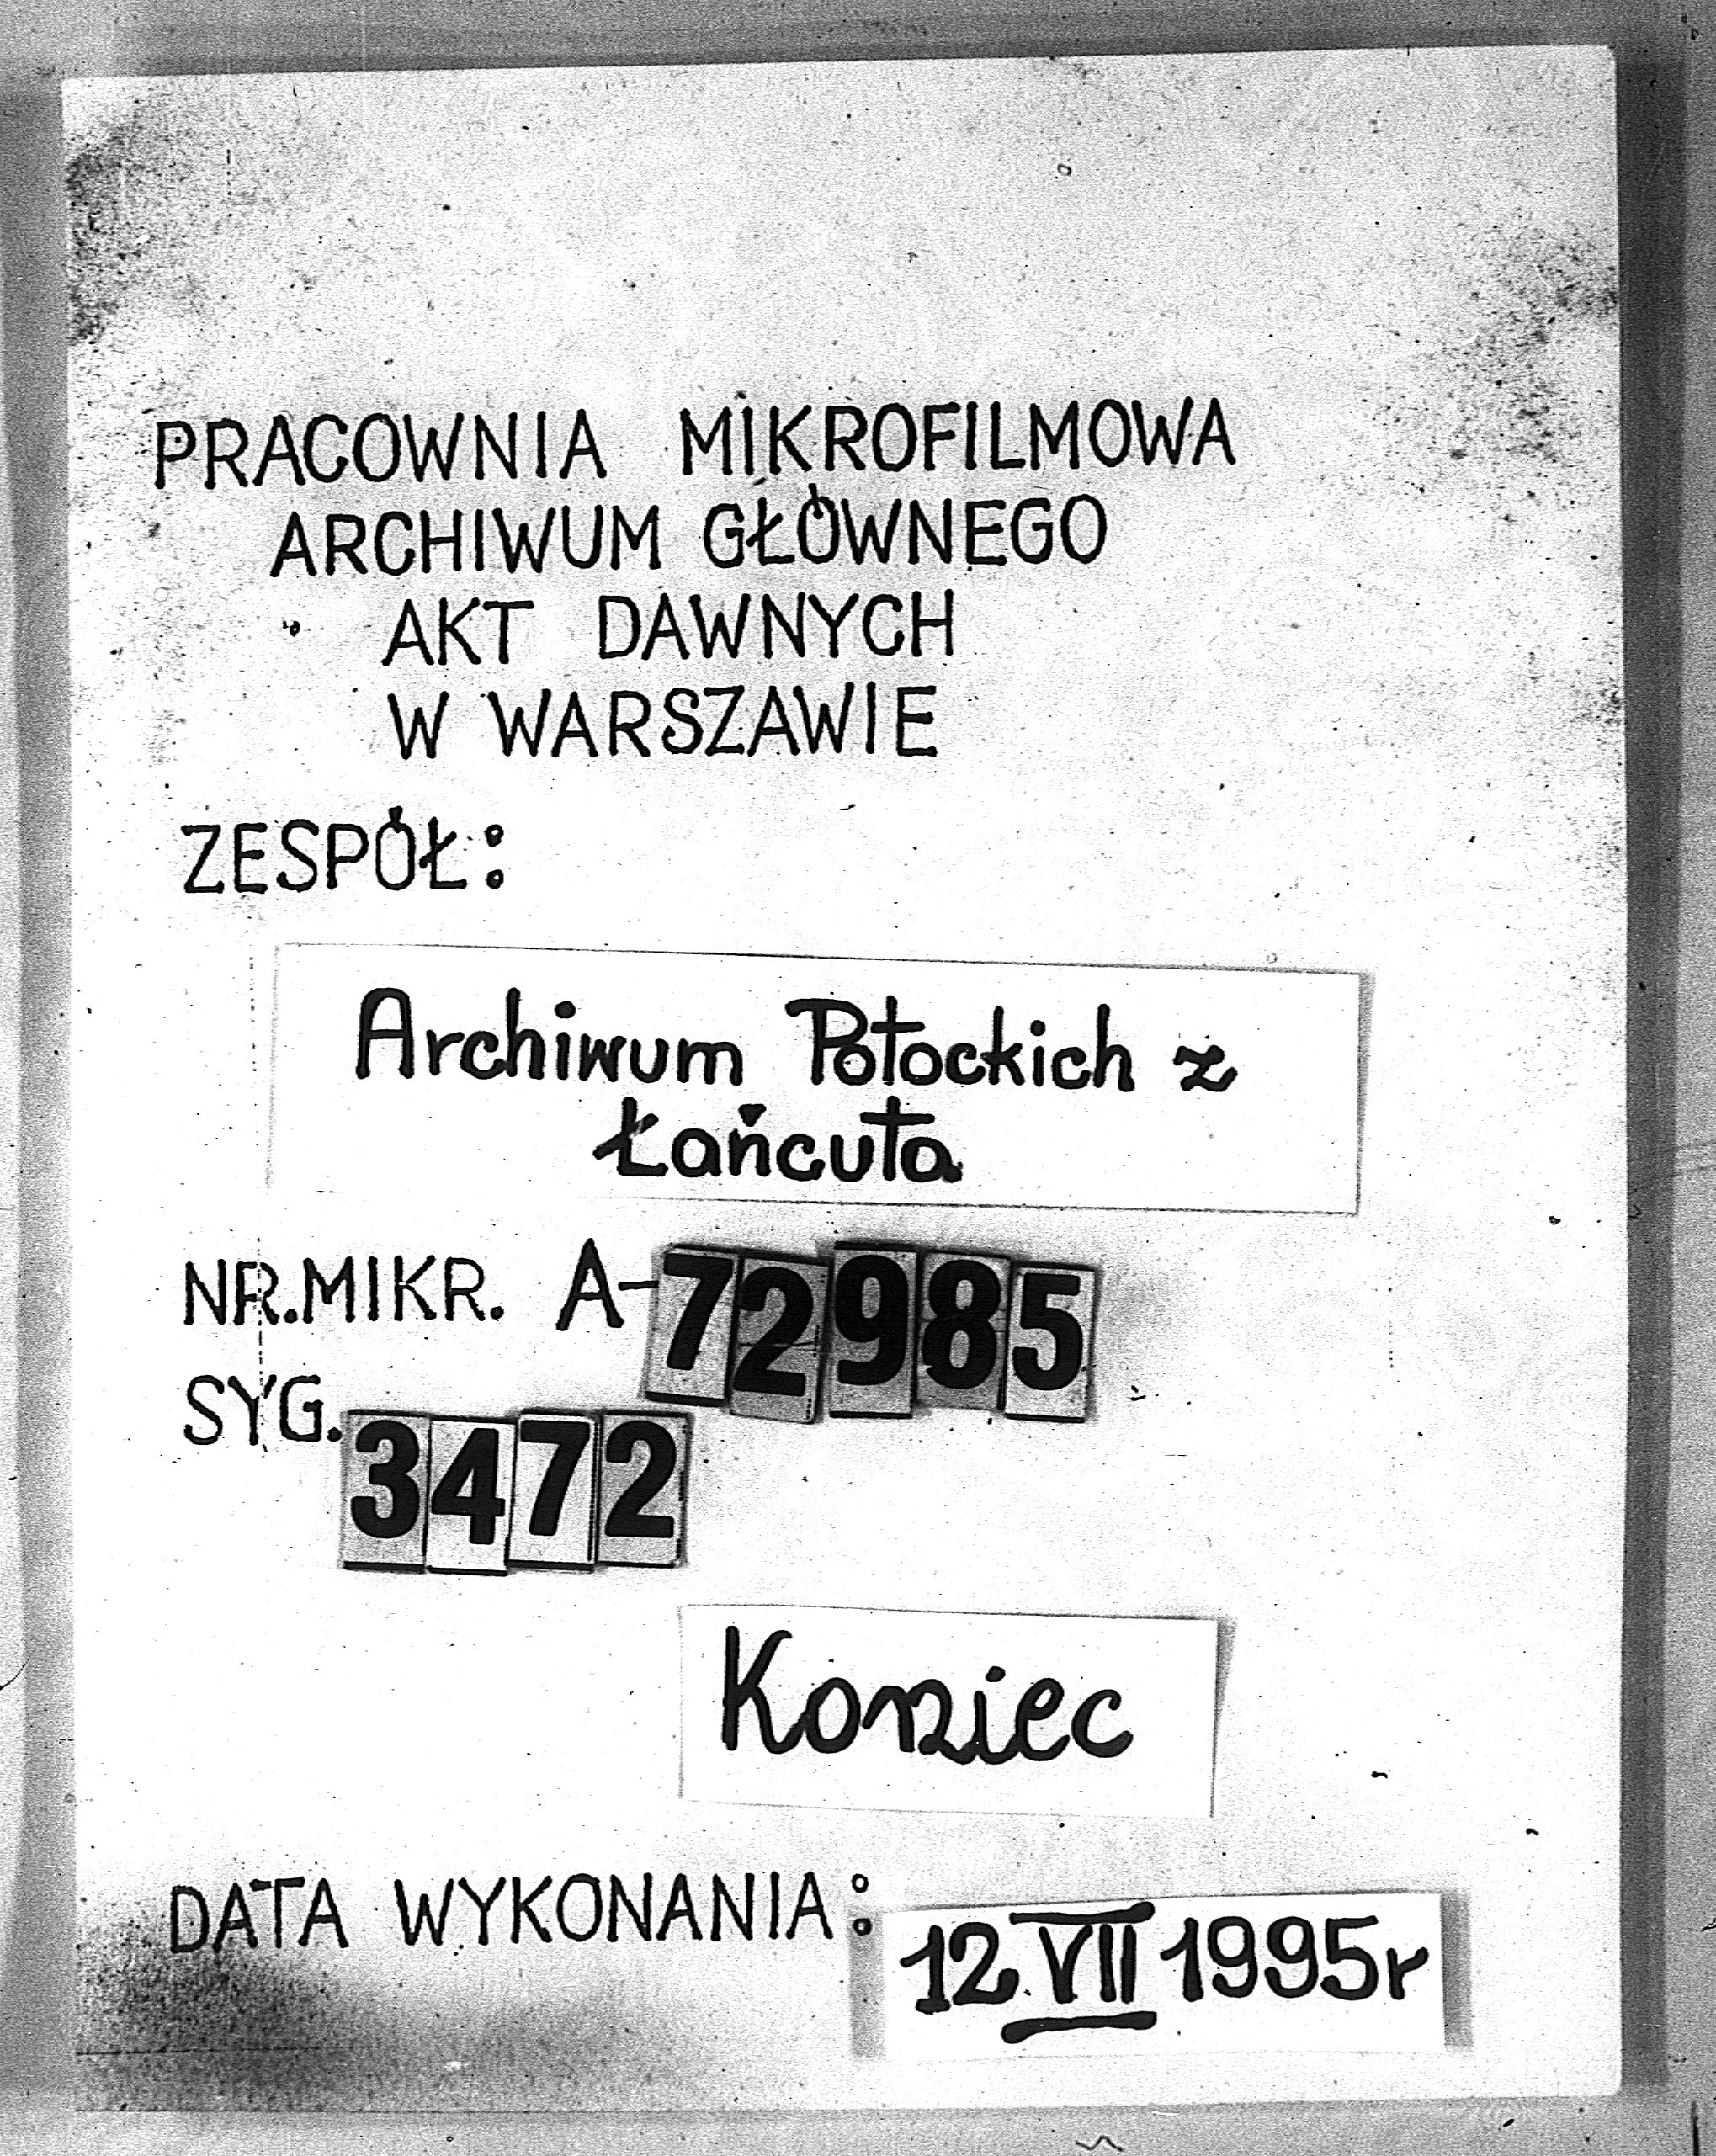 PRACOWNIA MIKROFILMOWA
ARCHIWUM GŁÓWNEGO
AKT DAWNYCH
W WARSZAWIE
ZESPÓŁ:
Archiwum Potockich z
Łańcuta
NR.MIKR. A-72985
SYG. 3472
Koniec
DATA WYKONANIA: 12.VII 1995r